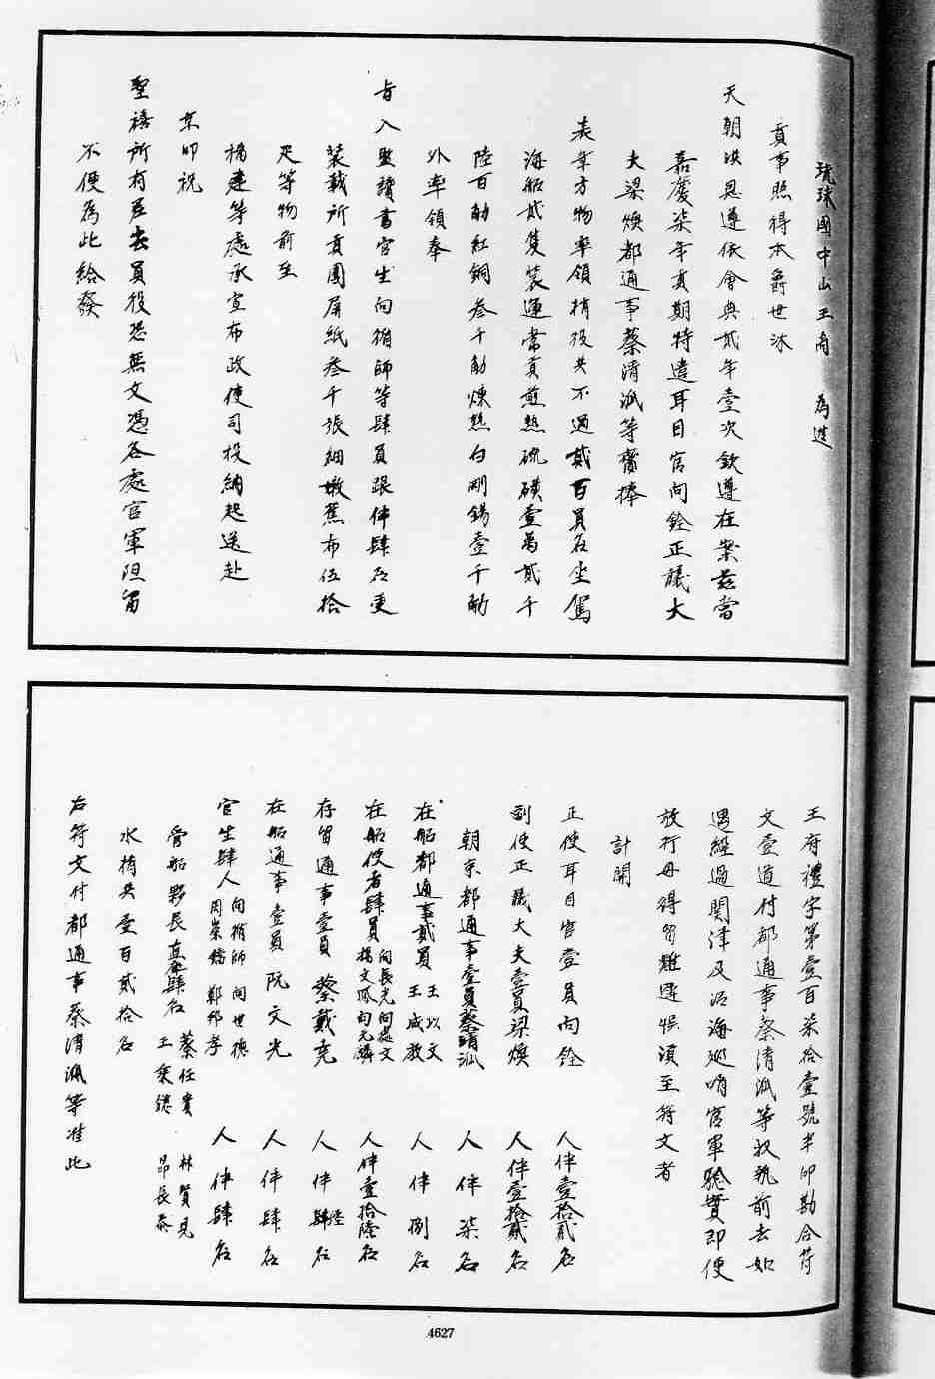 琉球國中山王尚 為進
貢事照得本爵世沐
天朝洪恩遵依會典貳年壹次欽遵在案茲當
嘉慶柒年貢期特遣耳目官向銓正議大
夫梁煥都通事蔡清派等齎捧
表章方物率領梢役共不過貳百員名坐駕
海船貳隻裝運常貢煎熟硫磺壹萬貳千
陸百觔紅銅叁千觔煉熟白剛錫壹千觔
外率領奉
旨入監讀書官生向循師等肆員跟伴肆名更
裝載所貢圍屏紙叁千張細嫩蕉布伍拾
疋等物前至
福建等處承宣布政使司投納起送赴
京叩祝
聖禧所有差去員役恐無文憑各處官軍阻留
不便為此給發
王府禮字第壹百柒拾壹號半印勘合符
文壹道付都通事蔡清派等收執前去如
遇經過關津及沿海巡哨官軍驗實即便
放行毋得留難遲悞須至符文者
計開
正使耳目官壹員向銓 人伴壹拾貳名
副使正議大夫壹員梁煥 人伴壹拾貳名
朝京都通事壹員蔡清派 人伴柒名
在船都通事貳員 王以文 王成教 人伴捌名
在船使者肆員 向長光 向超文 楊文鳳 向元麟 人伴壹拾陸名
存留通事壹員 蔡戴堯 人伴肆名
在船通事壹員 阮文光 人伴肆名
官生肆人 向循師 向世德 周崇鐈 鄭邦孝 人伴肆名
管船夥長直庫肆名 蔡任貴 林賀見 王秉鎴 昂長泰
水梢共壹百貳拾名
右符文付都通事蔡清派等准此
4627